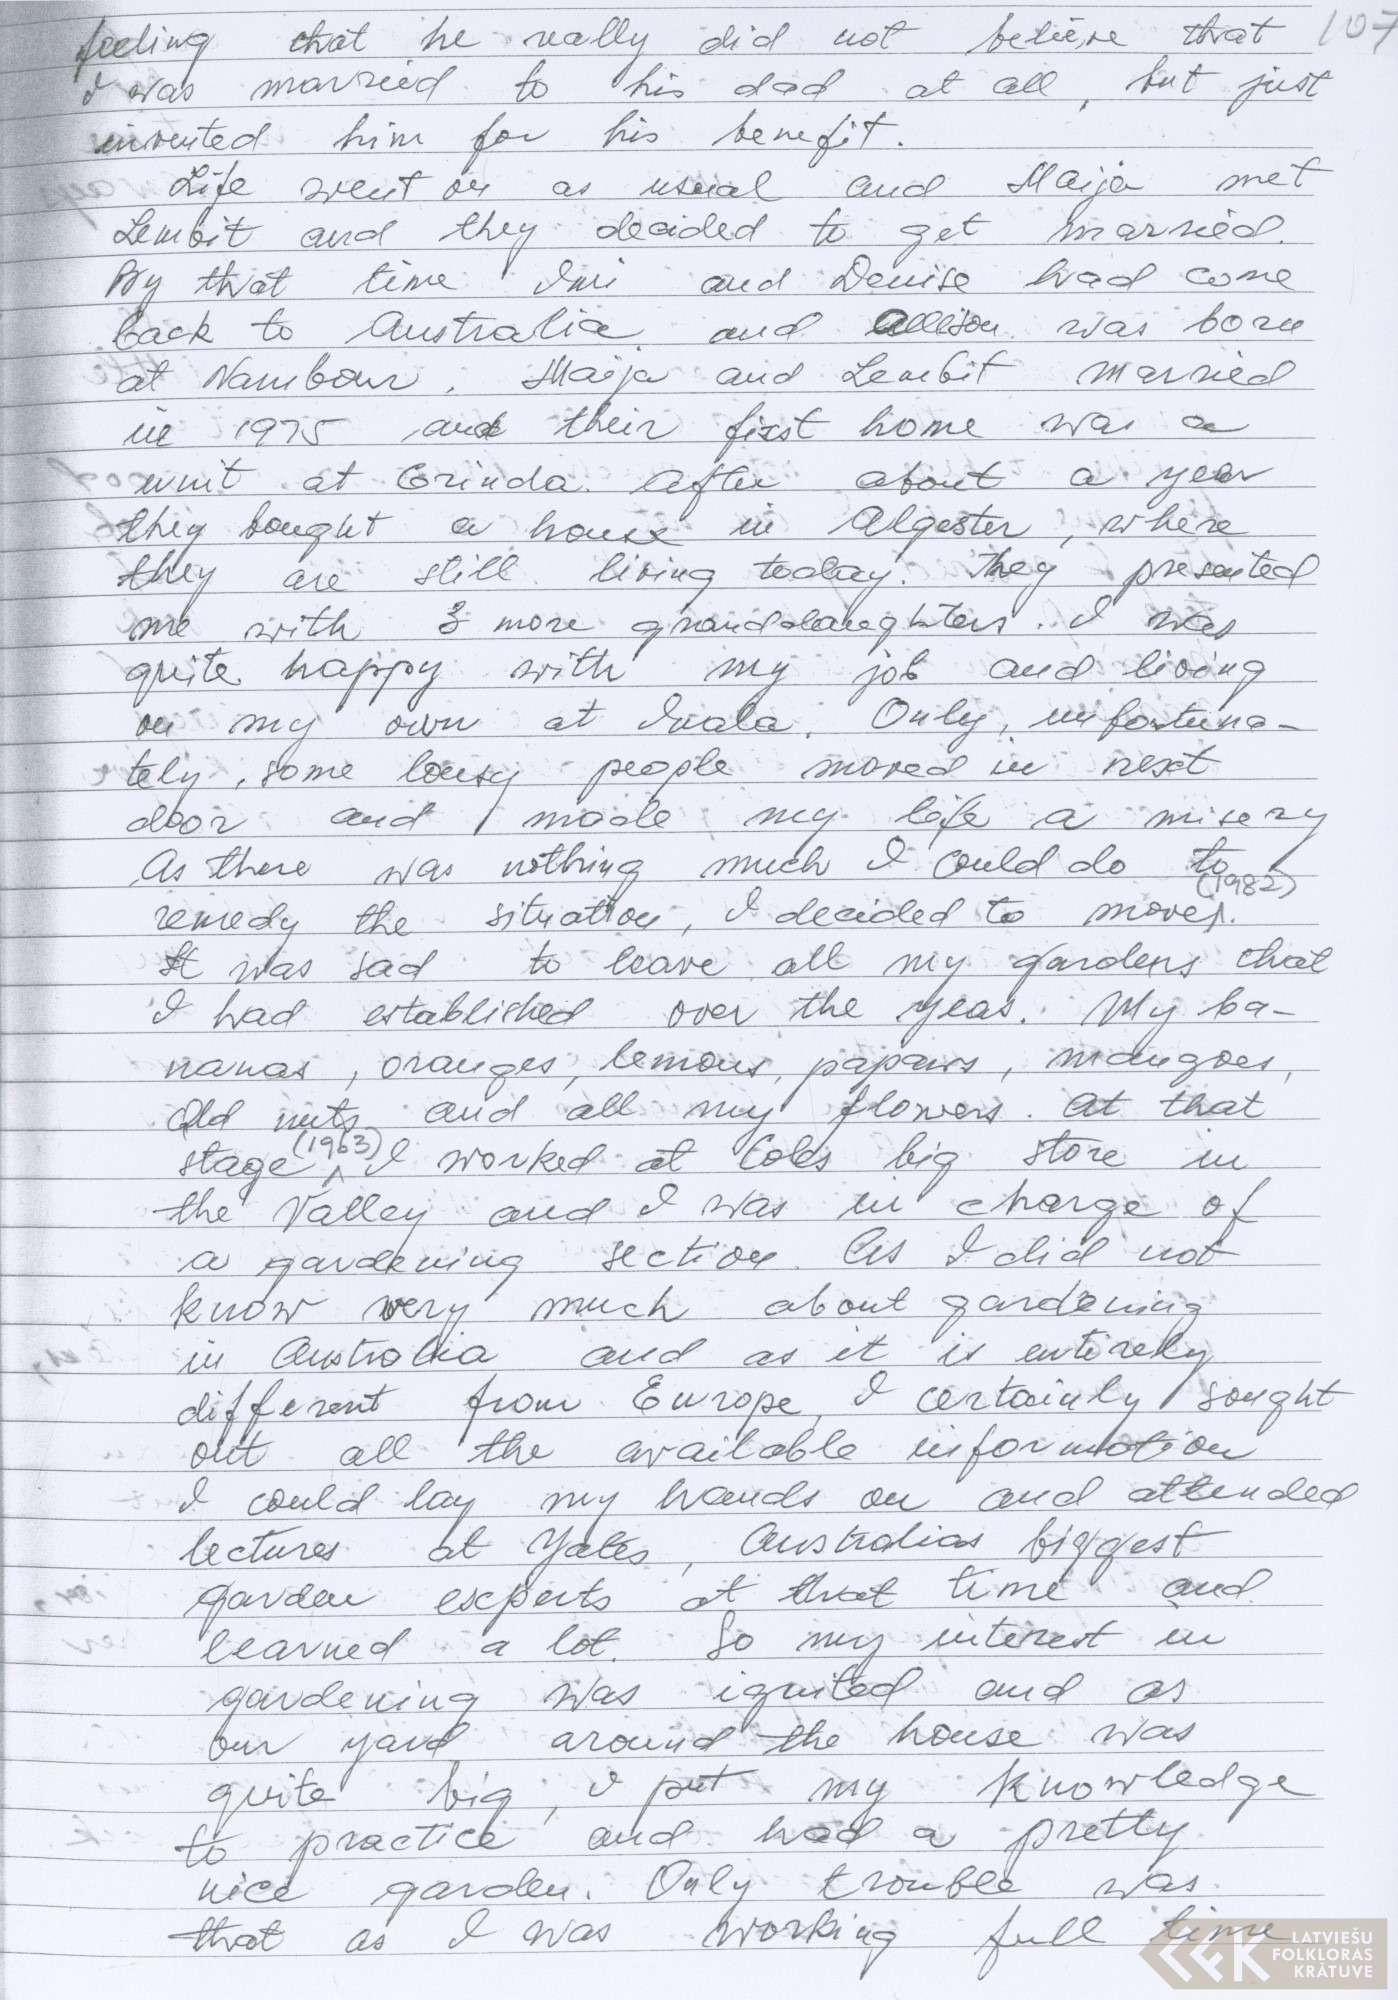 107
feeling that he really did not believe that
I was married to his dad at all, but just
invented him for his benefit.
Life went on as usual and Maija met
Lembit and they decided to get married.
By that time Imi and Denise had come
back to Australia and Allison was born
at Nambour. Maija and Lembit married
in 1975 and their first home was a
unit at Corinda. After about a year
they bought a house in Algester, where
they are still living today. They presented
me with 3 more granddaughters. I was
quite happy with my job and living
on my own at Inala. Only, unfortuna-
tely, some lousy people moved in next
door and made my life a misery
As there was nothing much I could do to
remedy the situation, I decided to move (1982).
It was sad to leave all my gardens that
I had established over the yeas. My ba-
nanas, oranges, lemons, papaws, mangoes,
Qld nuts and all my flowers. At that
stage (1963) I worked at Coles big store in
the Valley and I was in charge of
a gardening section. As I did not
know very much about gardening
in Australia and as it is entirely
different from Europe, I certainly sought
out all the available information
I could lay my hands on and attended
lectures at Yates, Australias biggest
garden experts at that time and
learned a lot. So my interest in
gardening was ignited and as
our yard around the house was
quite big, I put my knowledge
to practice and had a pretty
nice garden. Only trouble was
that as I was working full time
LATVIEŠU
FOLKLORAS
KRĀTUVE